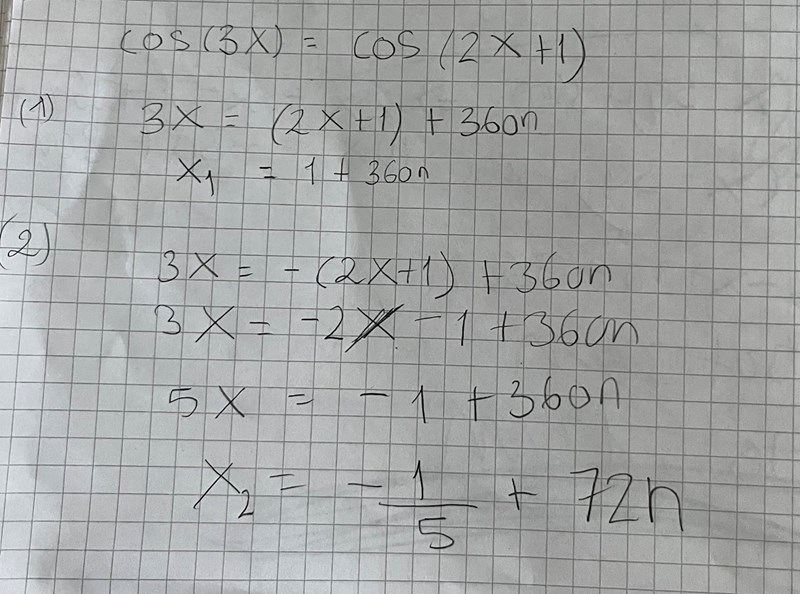 cos(3X) = cos (2X+1)
(1) 3X = (2X+1) + 360n
X₁ = 1 + 360n
(2) 3X = -(2X+1) + 360n
3X = -2X - 1 + 360n
5X = -1 + 360n
X₂ = -1/5 + 72n